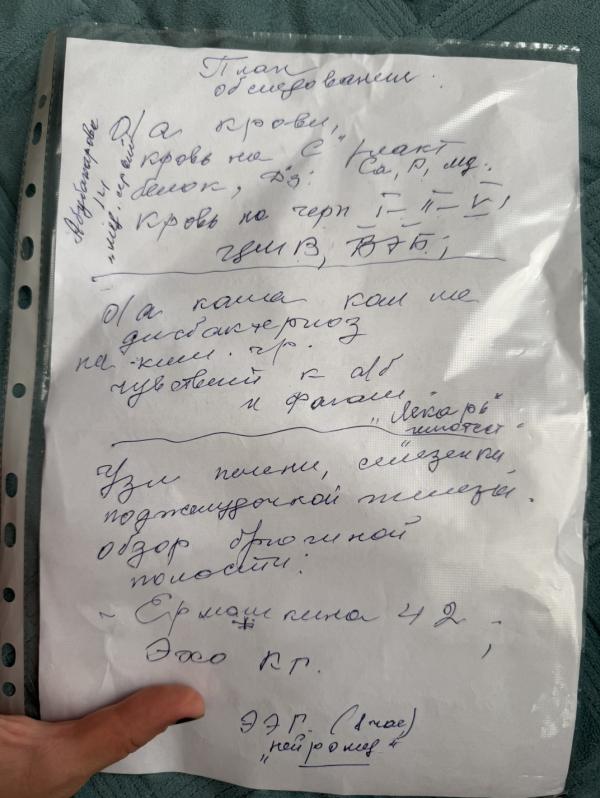 План
обследования.
о/а крови,
кровь на С реакт
белок, Д3: Са, Р, мд.
кровь на черп I – II – V,
ЦМВ, ВЭБ,
о/а кала кал на
дисбактериоз
на киш. гр.
чувствит к а/б
и фагам
"Лекарь"
Узи печени, селезенки
поджелудочной железы.
обзор брюшной
полости:
- Ермашкина 42;
Эхо кг.
ЭЭГ. (1 час)
"нейромед"
Абубакарова 14